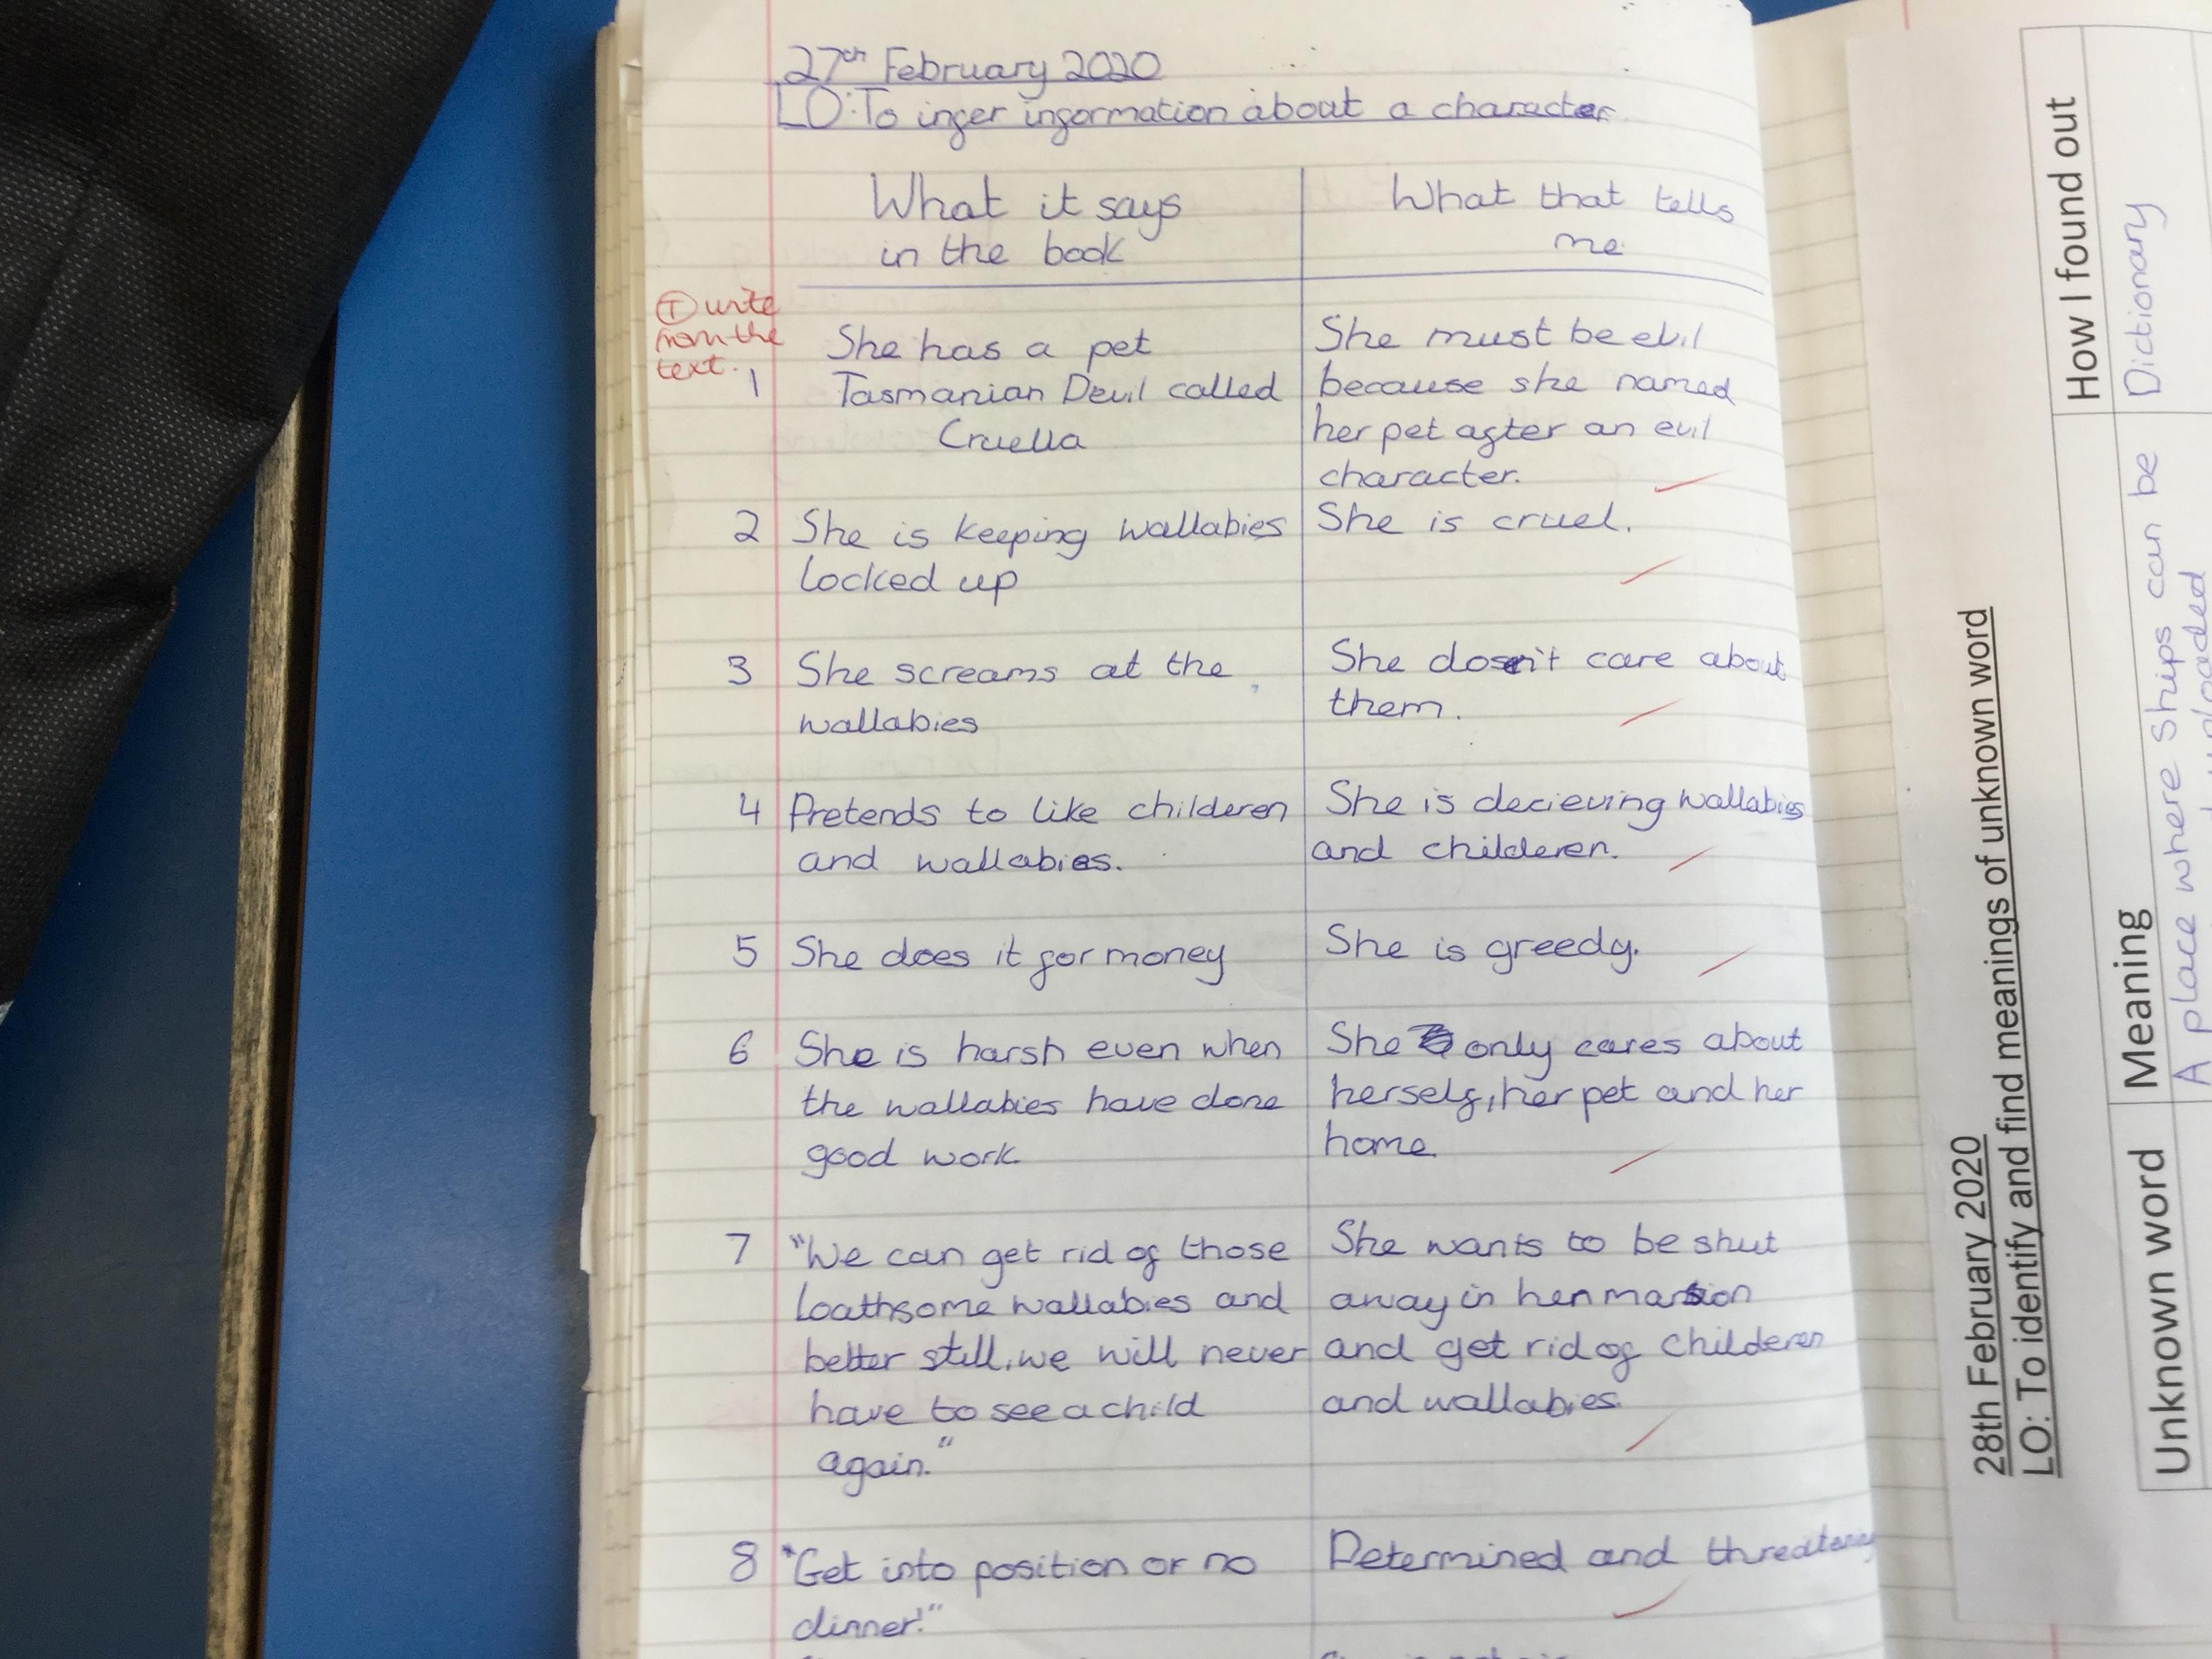 27th February 2020
LO: To infer information about a character
What it says
in the book
What that tells
me
T write
from the
text.
1
She has a pet
Tasmanian Devil called
Cruella
She must be evil
because she named
her pet after an evil
character.
2
She is keeping wallabies
locked up
She is cruel.
3
She screams at the
wallabies
She dosen't care about
them.
4
Pretends to like childeren
and wallabies.
She is decieving wallabies
and childeren.
5
She does it for money
She is greedy.
6
She is harsh even when
the wallabies have done
good work.
She only cares about
herself, her pet and her
home.
7
"We can get rid of those
loathsome wallabies and
better still, we will never
have to see a child
again."
She wants to be shut
away in her mansion
and get rid of childeren
and wallabies.
8
"Get into position or no
dinner!"
Determined and threatening
28th February 2020
LO: To identify and find meanings of unknown word
Unknown word
Meaning
How I found out
A place where ships can be
Dictionary